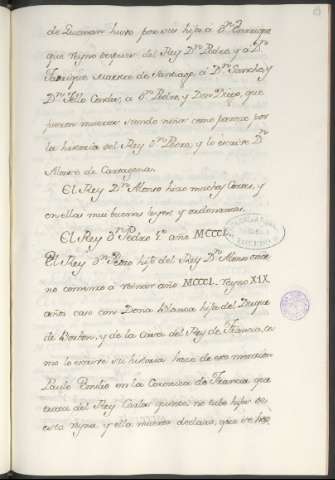 de Guzman huvo por sus hijos á Dn Enrrique
que reyno despues del Rey Dn Pedro, y á Dn
Fadrique Maestre de Santiago, á Dn Sancho, y
Dn Tello Condes, á Dn Pedro, y Don Diego, que
fueron muertos siendo niños como parece por
la historia del Rey Dn Pedro, y lo escrive Dn
Alonso de Cartagena.
El Rey Dn Alonso hizo muchas Cortes, y
en ellas mui buenas leyes y ordenanzas.
El Rey Dn Pedro 1º año MCCCL.
El Rey Dn Pedro hijo del Rey Dn Alonso
no comenzó á reinar año MCCCL. reyno XIX
años caso con Dona Blanca hija del Duque
de Borbon, y de la casa del Rey de Francia, co
mo lo escrive su historia hace de esto mencion
Paulo Emilio en la Coronica de Francia que
trata del Rey Carlos quinto: no tubo hijos en
esta reyna, y ella muerta declaro, que se